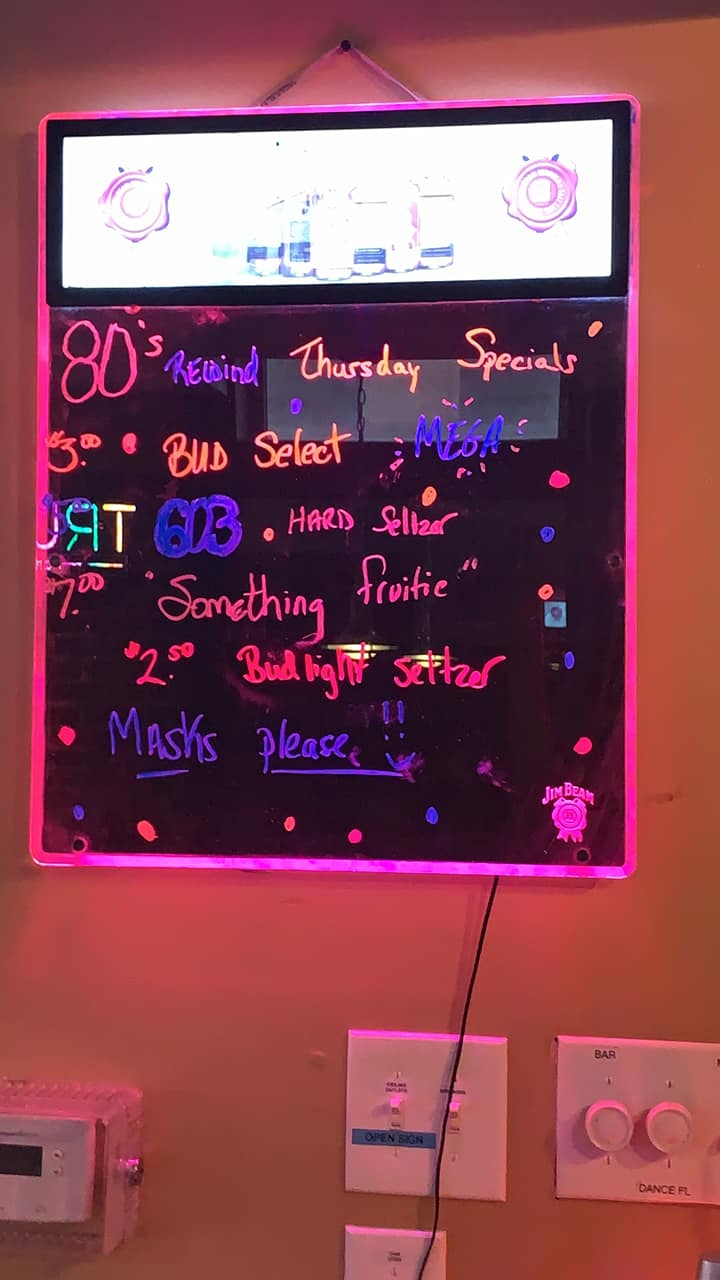 80's REWind Thursday Specials
$3.00 BUD Select MEGA
603 HARD Seltzer
$7.00 "Something fruitie"
$2.50 Bud light seltzer
MASKS please !!
JIM BEAM
OPEN SIGN
BAR
DANCE FL